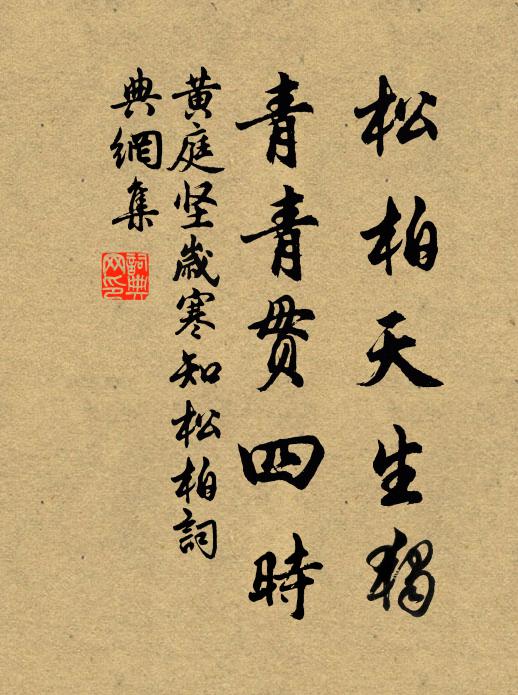 松柏天生獨
青青貫四時
黄庭坚歲寒知松柏詞
典網集
詞典网印